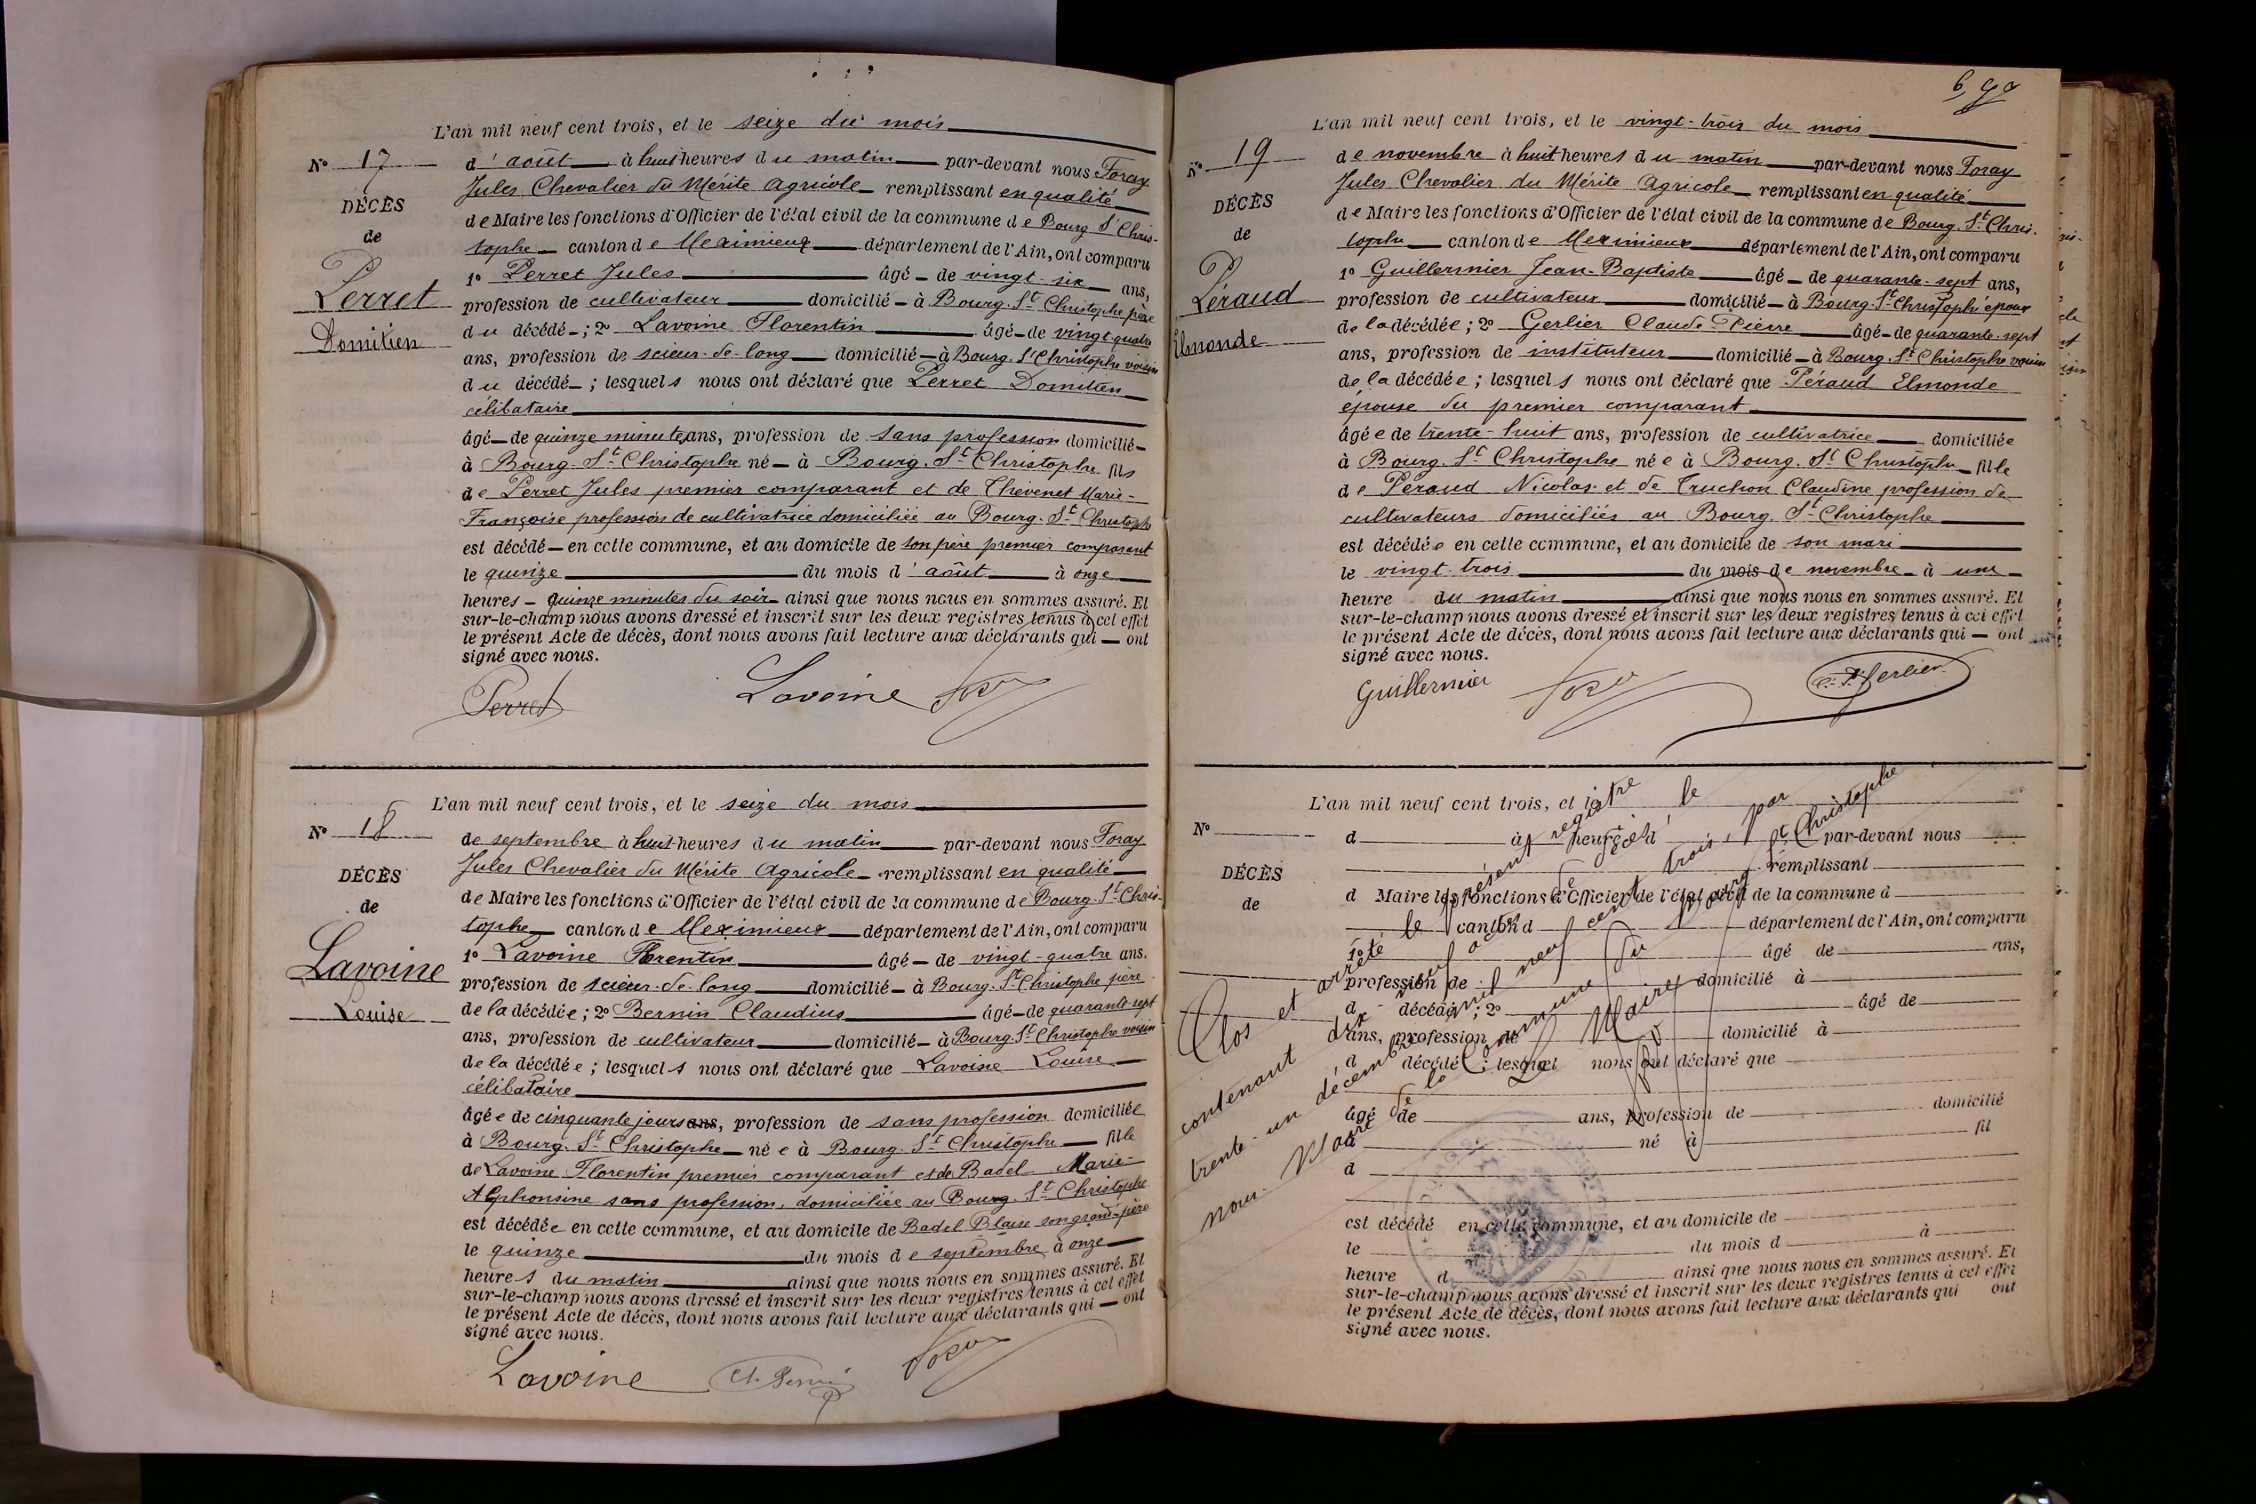 L'an mil neuf cent trois, et le seize du mois
N° 17
d'août à huit heures du matin par-devant nous Foray
Jules Chevalier du Mérite Agricole remplissant en qualité
DÉCÈS
de Maire les fonctions d'Officier de l'état civil de la commune de Bourg St Chris-
de
tophe canton de Meximieux département de l'Ain, ont comparu
1° Perret Jules âgé de vingt-six ans,
Perret
profession de cultivateur domicilié à Bourg-St-Christophe père
Domitien
du décédé ; 2° Lavoine Florentin âgé de vingt quatre
ans, profession de scieur-de-long domicilié à Bourg-St Christophe voisin
du décédé ; lesquels nous ont déclaré que Perret Domitien
célibataire
âgé de quinze minutes ans, profession de sans profession domicilié
à Bourg-St-Christophe né à Bourg-St-Christophe fils
de Perret Jules premier comparant et de Thévenet Marie-
Françoise profession de cultivatrice domiciliée au Bourg-St-Christophe
est décédé en cette commune, et au domicile de son père premier comparant
le quinze du mois d'août à onze
heures quinze minutes du soir ainsi que nous nous en sommes assuré. Et
sur-le-champ nous avons dressé et inscrit sur les deux registres tenus à cet effet
le présent Acte de décès, dont nous avons fait lecture aux déclarants qui ont
signé avec nous.
Perret Lavoine Foray
L'an mil neuf cent trois, et le seize du mois
N° 18
de septembre à huit heures du matin par-devant nous Foray
Jules Chevalier du Mérite Agricole remplissant en qualité
DÉCÈS
de Maire les fonctions d'Officier de l'état civil de la commune de Bourg-St-Chris-
de
tophe canton de Meximieux département de l'Ain, ont comparu
1° Lavoine Florentin âgé de vingt-quatre ans.
Lavoine
profession de scieur-de-long domicilié à Bourg-St-Christophe père
Louise
de la décédée ; 2° Bernin Claudius âgé de quarante-sept
ans, profession de cultivateur domicilié à Bourg-St-Christophe voisin
de la décédée ; lesquels nous ont déclaré que Lavoine Louise
célibataire
âgée de cinquante jours ans, profession de sans profession domiciliée
à Bourg-St-Christophe née à Bourg-St-Christophe fille
de Lavoine Florentin premier comparant et de Badel Marie-
Alphonsine sans profession, domiciliée au Bourg-St-Christophe
est décédée en cette commune, et au domicile de Badel Blaise son grand-père
le quinze du mois de septembre à onze
heures du matin ainsi que nous nous en sommes assuré. Et
sur-le-champ nous avons dressé et inscrit sur les deux registres tenus à cet effet
le présent Acte de décès, dont nous avons fait lecture aux déclarants qui ont
signé avec nous.
Lavoine Cl. Bernin Foray
L'an mil neuf cent trois, et le vingt-trois du mois
N° 19
de novembre à huit heures du matin par-devant nous Foray
Jules Chevalier du Mérite Agricole remplissant en qualité
DÉCÈS
de Maire les fonctions d'Officier de l'état civil de la commune de Bourg-St-Chris-
de
tophe canton de Meximieux département de l'Ain, ont comparu
1° Guillermier Jean-Baptiste âgé de quarante-sept ans,
Péraud
profession de cultivateur domicilié à Bourg-St-Christophe époux
Elmonde
de la décédée ; 2° Gerlier Claude-Pierre âgé de quarante-sept
ans, profession de instituteur domicilié à Bourg-St-Christophe voisin
de la décédée ; lesquels nous ont déclaré que Péraud Elmonde
épouse du premier comparant
âgée de trente-huit ans, profession de cultivatrice domiciliée
à Bourg-St Christophe née à Bourg-St Christophe fille
de Péraud Nicolas et de Truchon Claudine profession de
cultivateurs domiciliés au Bourg-St-Christophe
est décédée en cette commune, et au domicile de son mari
le vingt-trois du mois de novembre à une
heure du matin ainsi que nous nous en sommes assuré. Et
sur-le-champ nous avons dressé et inscrit sur les deux registres tenus à cet effet
le présent Acte de décès, dont nous avons fait lecture aux déclarants qui ont
signé avec nous.
Guillermier Foray C. P. Gerlier
L'an mil neuf cent trois, et le
N°
d à heure d par-devant nous
remplissant
DÉCÈS
d Maire les fonctions d'Officier de l'état civil de la commune d
de
canton d département de l'Ain, ont comparu
1° âgé de ans,
profession de domicilié à
d décédé ; 2° âgé de
ans, profession de domicilié à
d décédé ; lesquel nous ont déclaré que
âgé de ans, profession de domicilié
à né à fil
d
est décédé en cette commune, et au domicile de
le du mois d à
heure d ainsi que nous nous en sommes assuré. Et
sur-le-champ nous avons dressé et inscrit sur les deux registres tenus à cet effet
le présent Acte de décès, dont nous avons fait lecture aux déclarants qui ont
signé avec nous.
Clos et arrêté le présent registre
contenant dix-neuf actes de décès, le
trente-un décembre mil neuf cent trois, par
nous Maire de la Commune du Bourg St Christophe
Le Maire
Foray